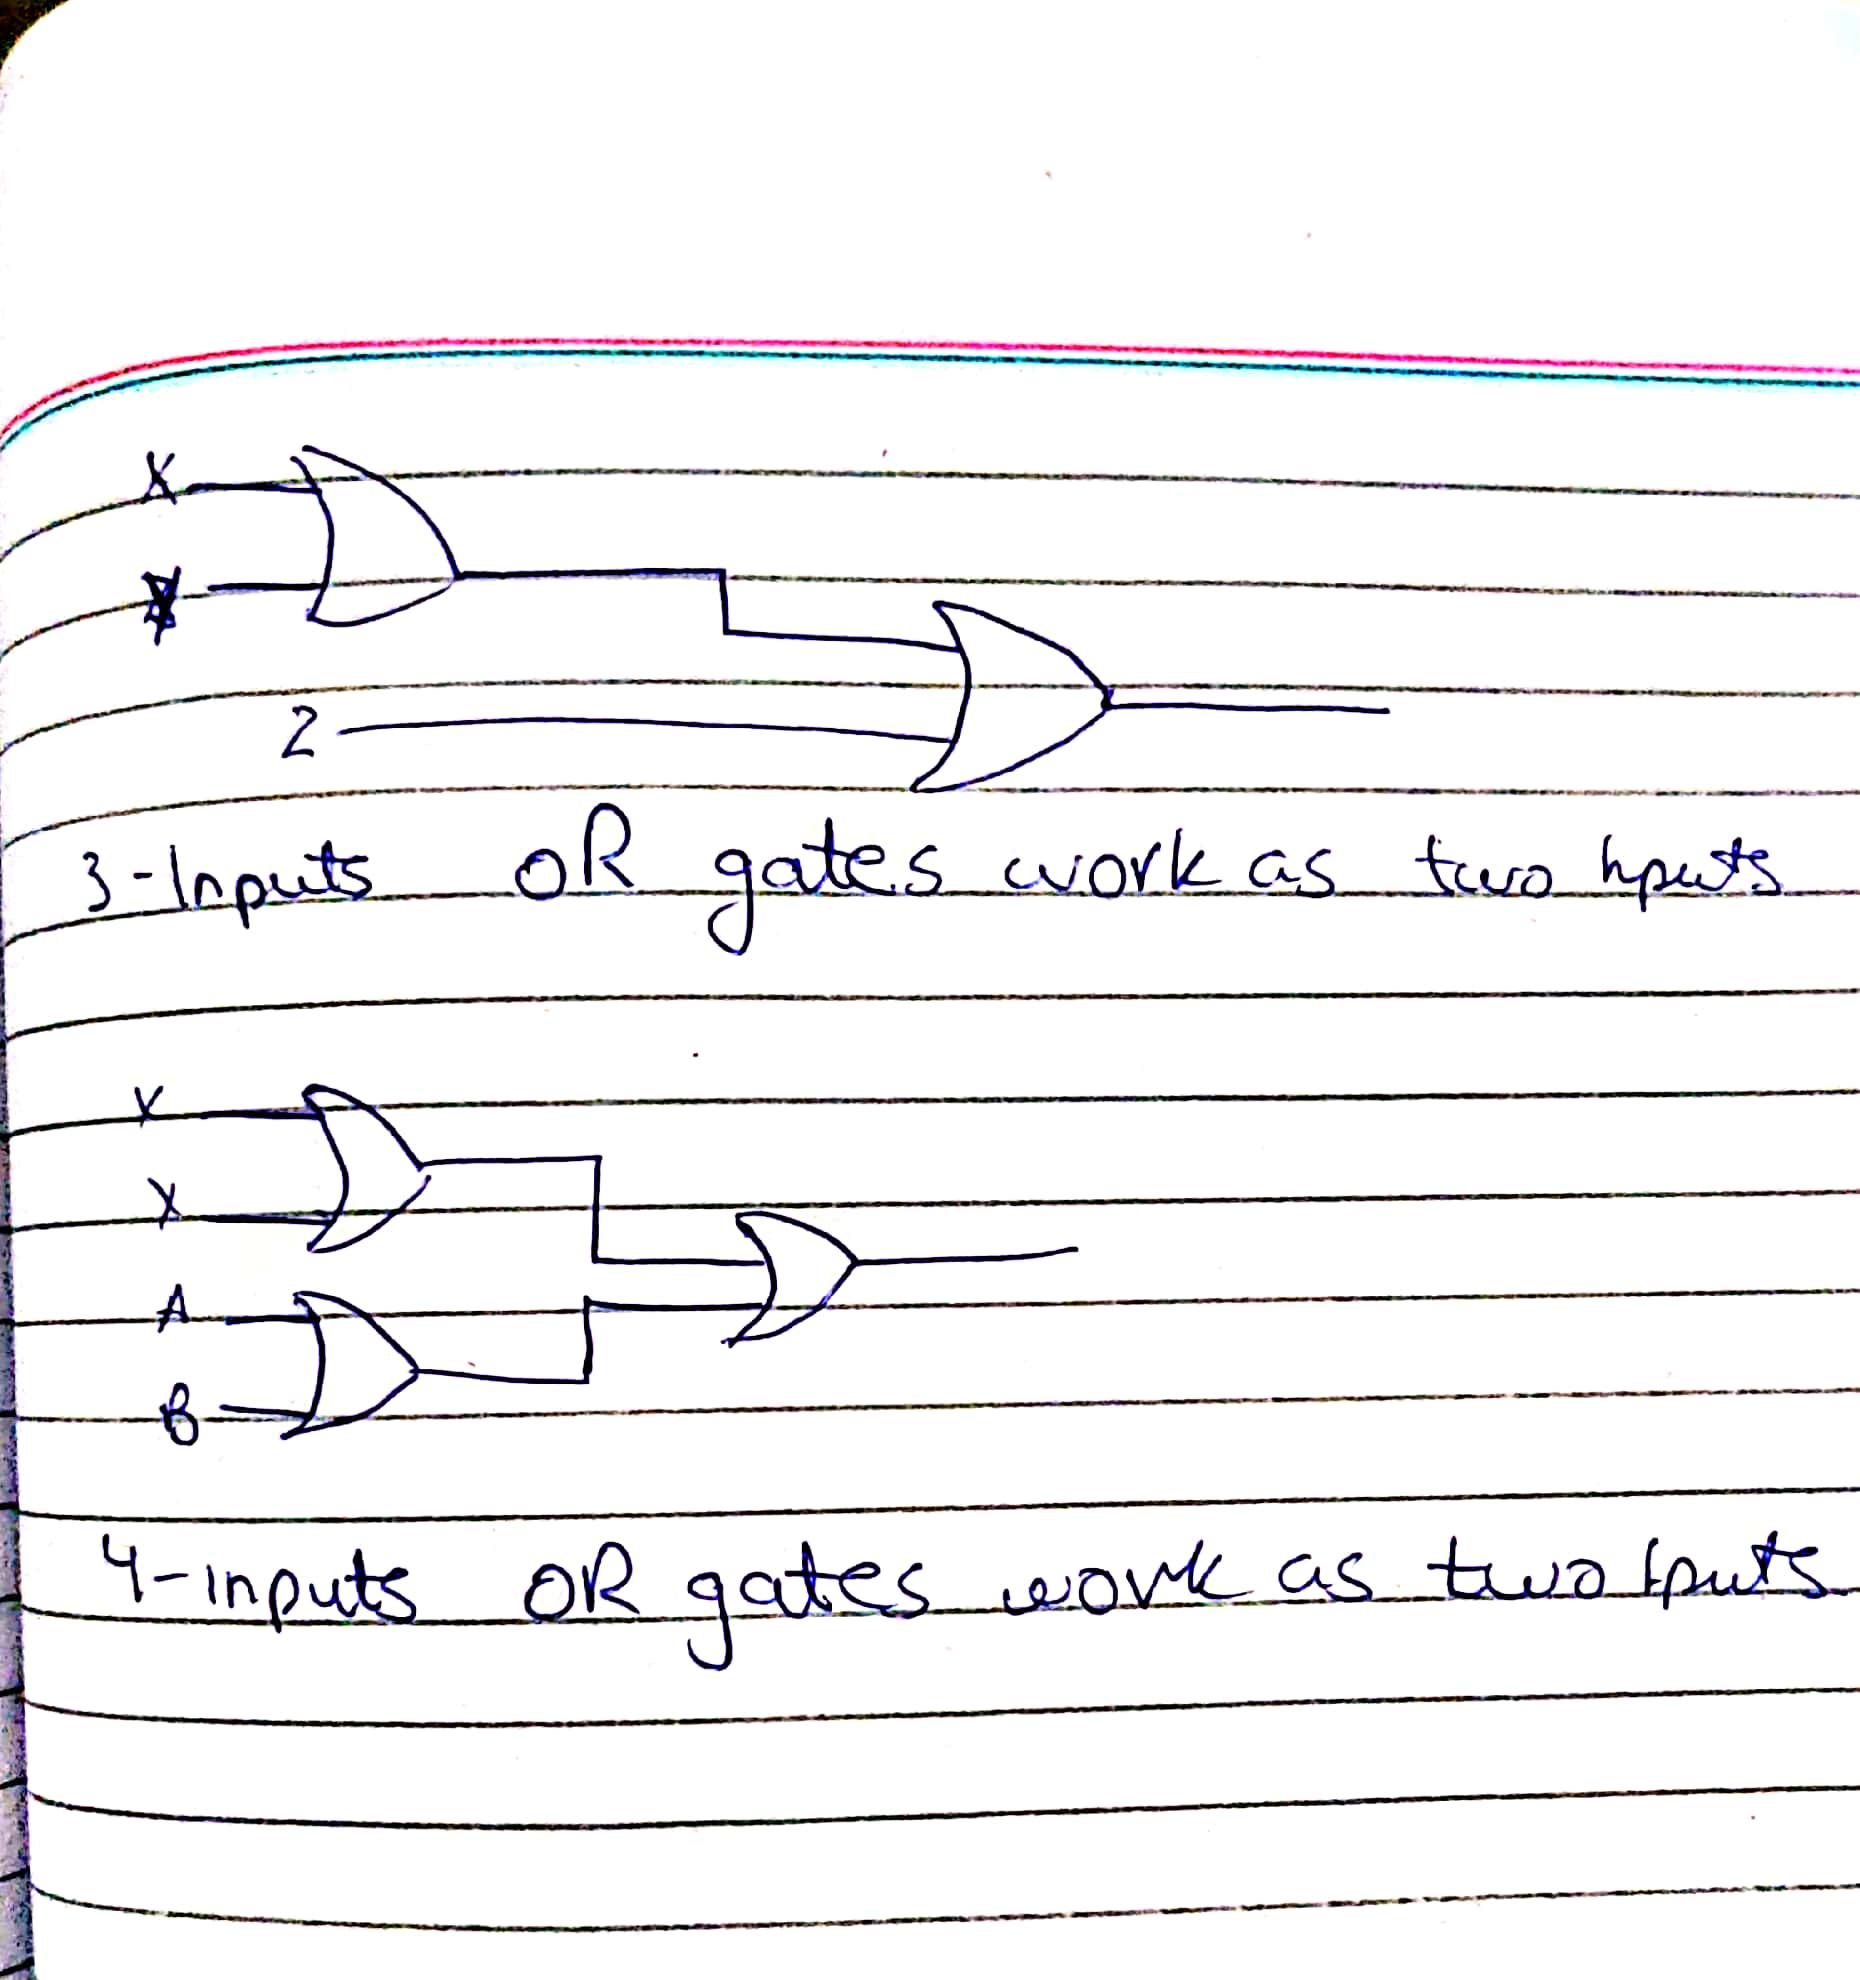 X
Z
3-Inputs OR gates work as two Inputs
X
A
B
4-inputs OR gates work as two Iputs